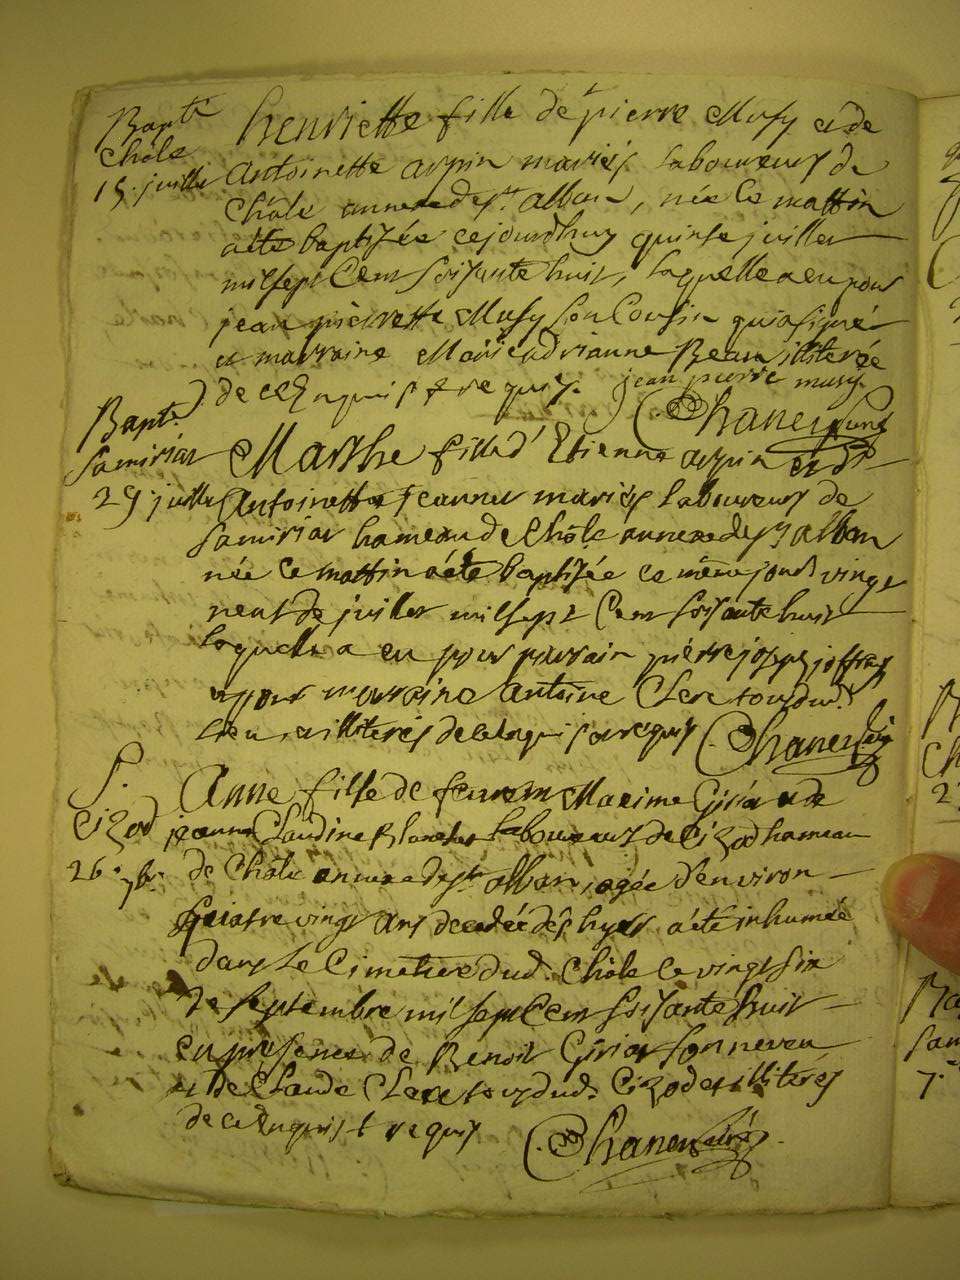 Bapt.e
Chôle
15. juillet
henriette fille de pierre Musy et de
Antoinette arpin mariés laboureurs de
Chôle annexe de st. alban, née ce mattin
a ete baptisée cejourdhuy quinse juillet
mil sept Cent soisante huit, laquelle a eu pour
jean pierrette Musy son Cousin qui a signé
et marraine Marie adrianne Beau illiterée
de ce enquis et requis. jean pierre musy
Chaney Curé
Bapt.e
Samiriat
29. juillet
Marthe fille d'Etienne arpin et d'
Antoinette jeannet mariés laboureurs de
Samiriat hameau de Chôle annexe de st alban
née ce mattin a été baptisée ce même jour vingt
neuf de juillet mil sept Cent soisante huit
laquelle a eu pour parrain pièrre joseph joffray
et pour marraine Antoine Clerc tous dud.
Lieu, illiterés de ce enquis et requis Chaney
S.
Cizod
26. 7bre.
Anne fille de feu Maxime Giriat et de
jeanne Claudine laboureurs de Cizod hameau
de Chôle annexe de st. alban, agée d'environ
quatre vingt ans decedée dès hyer, a été inhumée
dans le Cimetière dud. Chôle ce vingt six
de septembre mil sept Cent soisante huit
en presence de Benoit Giriat son neveu
et de Claude Clerc tous dud. Cizod et illiterés
de ce enquis et requis Chaney Curé